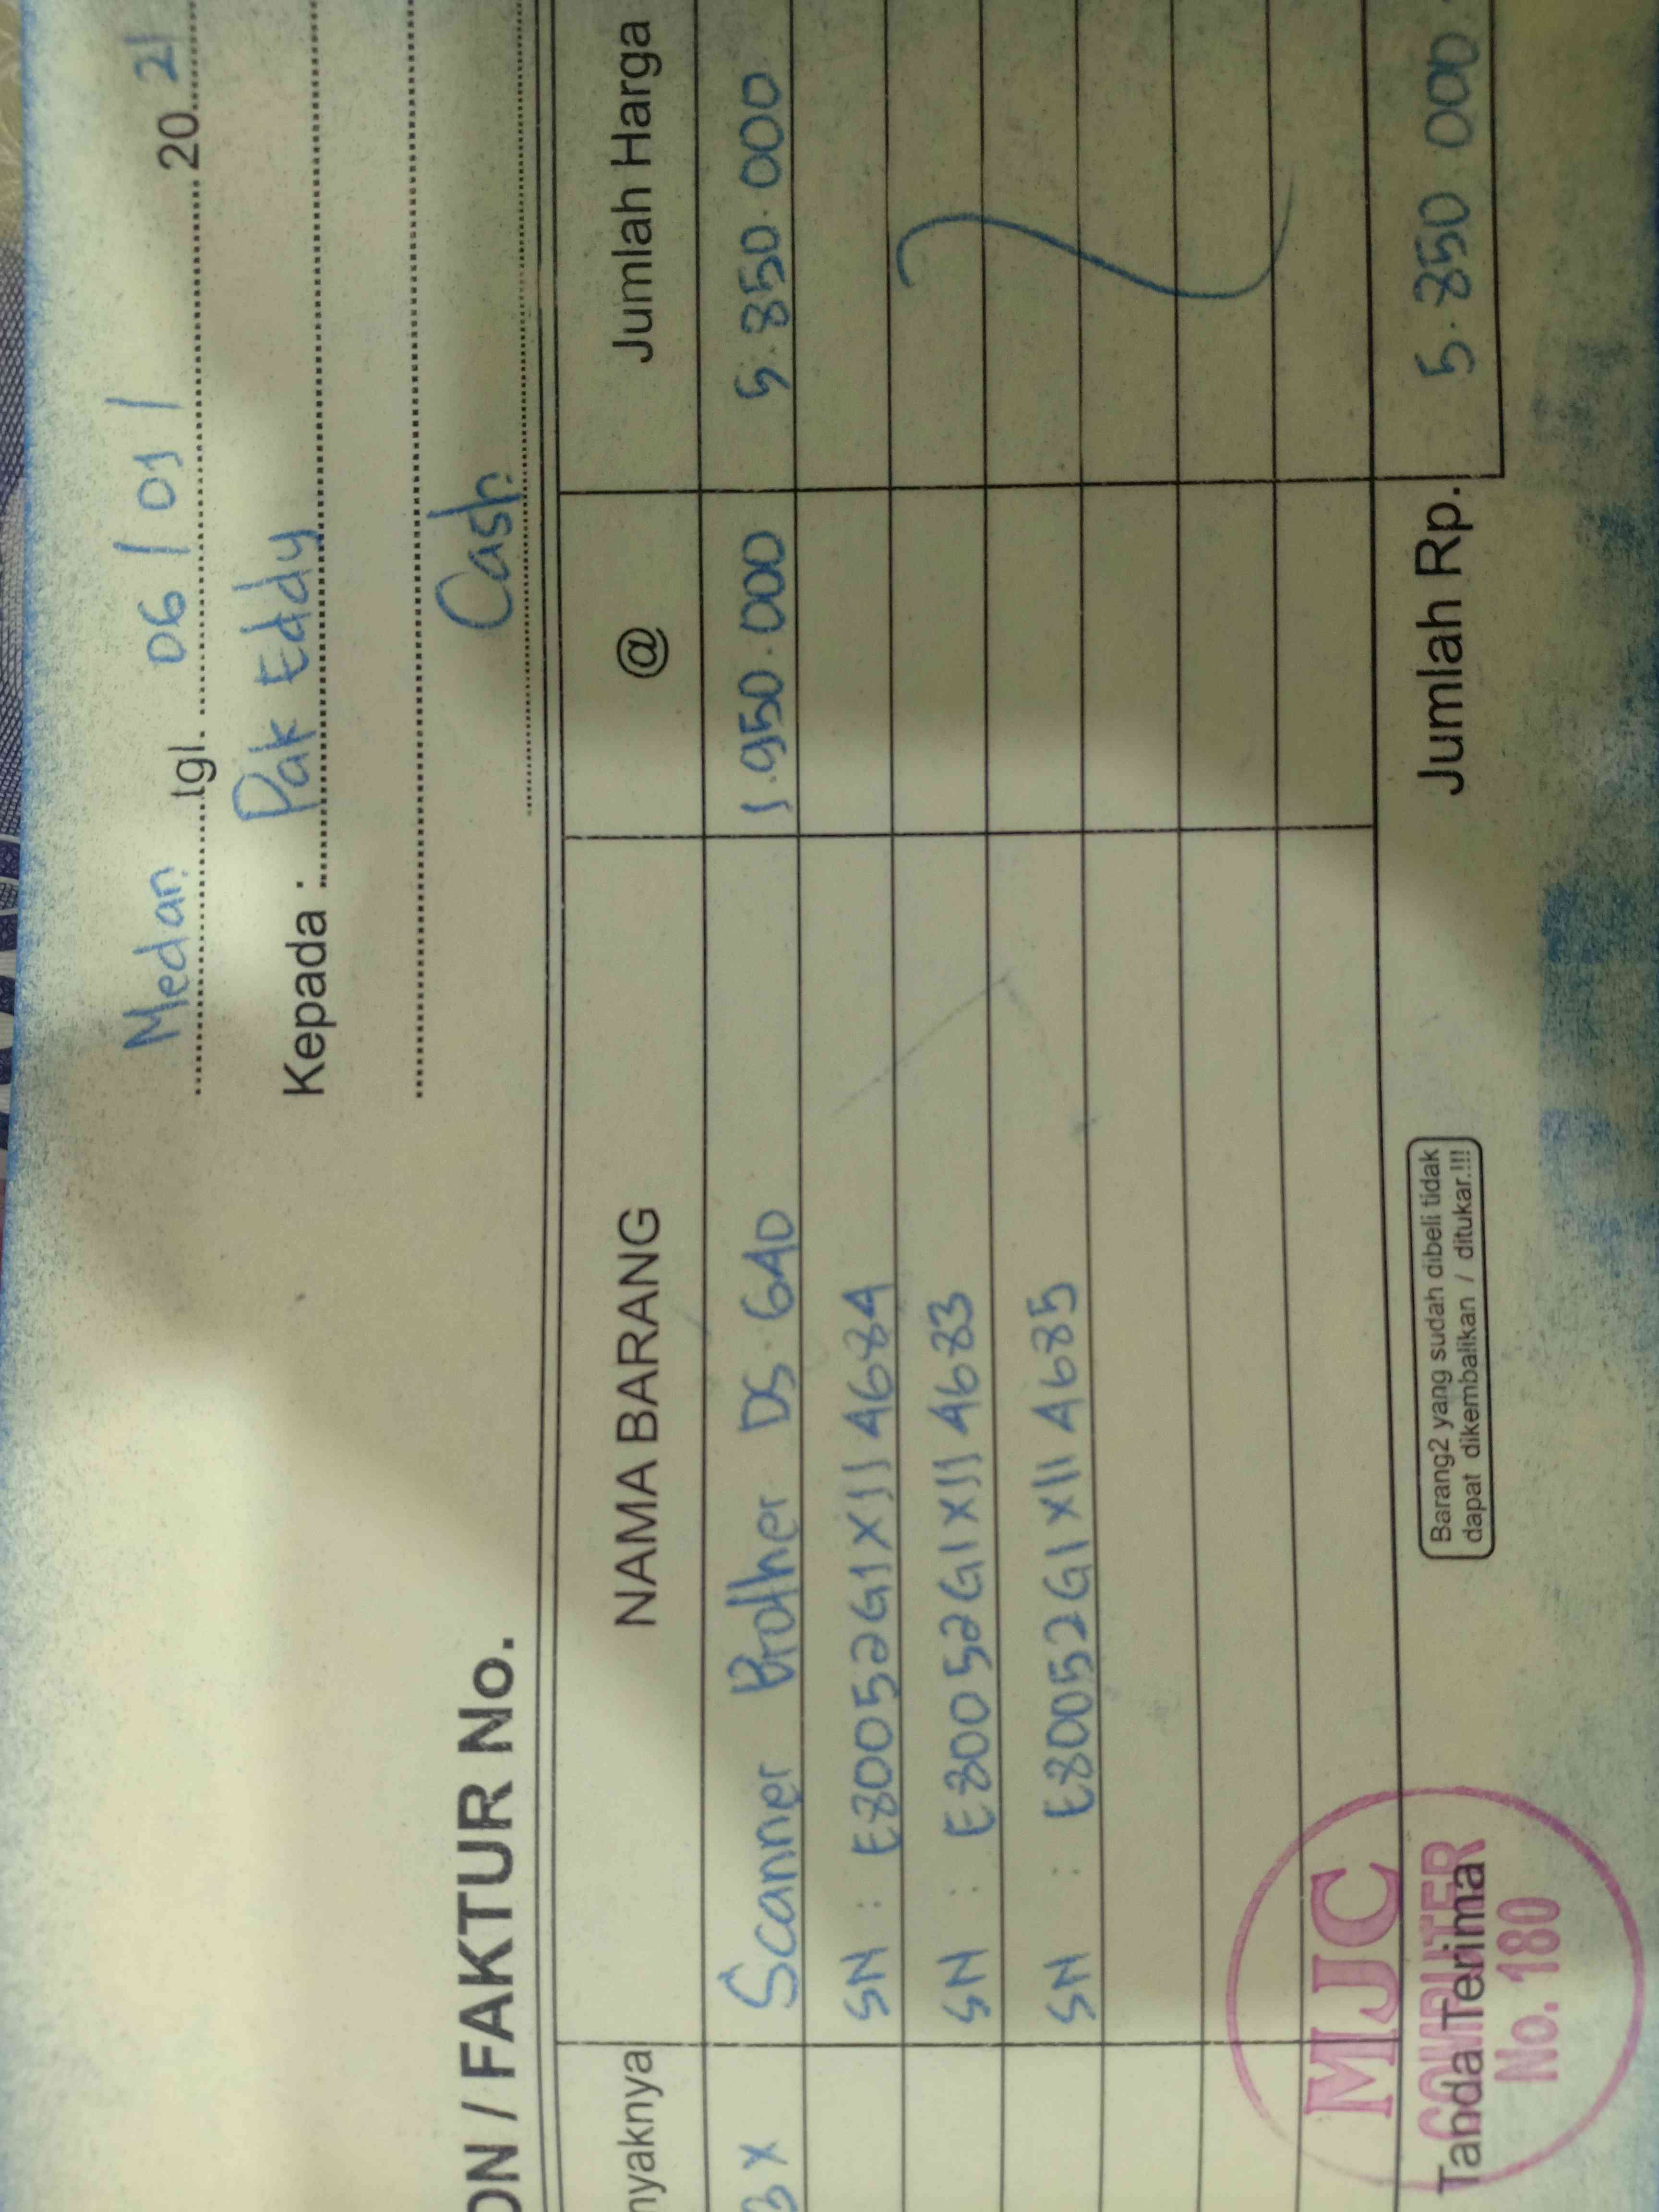 Medan tgl. 06 / 01 / 20 21
Kepada : Pak Eddy
Cash
ON / FAKTUR No.
nyaknya NAMA BARANG @ Jumlah Harga
3 x Scanner Brother DS. 640 1.950.000 5.850.000
SN : E80052G1X114684
SN : E80052G1X114683
SN : E80052G1X114685
MJC
COMPUTER
No. 180
Tanda Terima
Barang2 yang sudah dibeli tidak
dapat dikembalikan / ditukar.!!!
Jumlah Rp. 5.850 000.